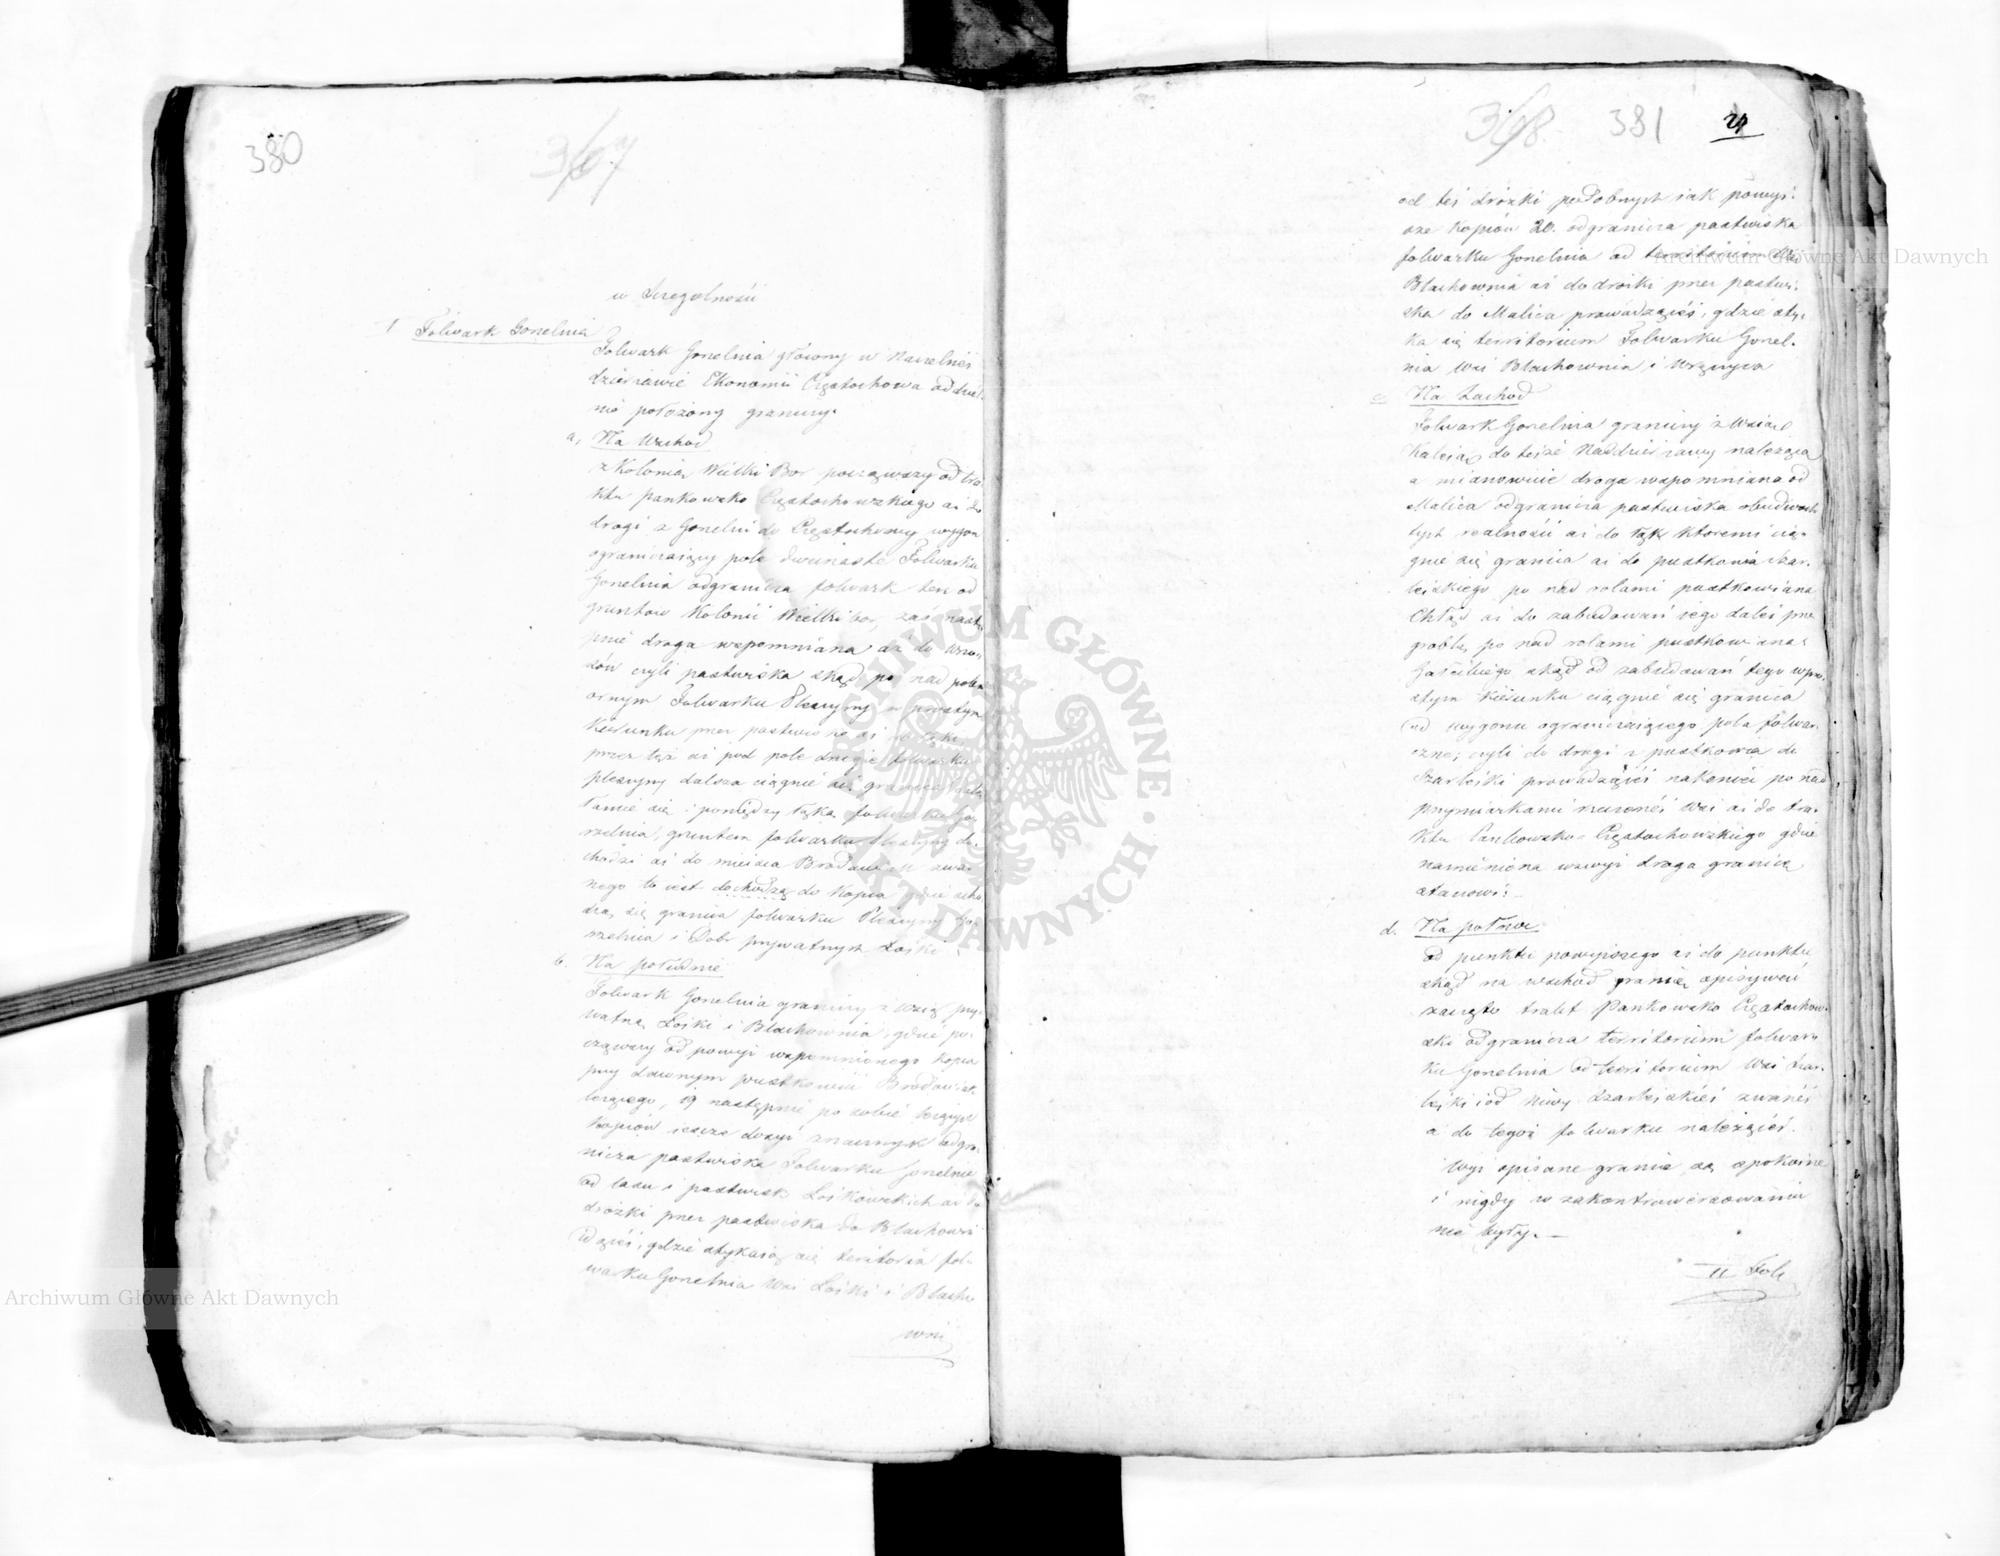 380
367
w Szczegolności
1 Folwark Gorzelnia
Folwark Gorzelnia główny w Naczelnéj
dzierżawie Ekonomii Częstochowa oddziel-
nie położony graniczy.
a, Na Wschod
z Kolonią Wielki Bor począwszy od tra-
ktu pankowsko Częstochowskiego aż do
drogi z Gorzelni do Częstochowy wygon
ograniczaiący pole dwunaste Folwarku
Gorzelnia odgranicza folwark ten od
gruntow Kolonii Wielki bor, zaś nastę
pnie droga wspomniana aż do
czyli pastwiska skąd po nad polem
ornym Folwarku w prostym
Kierunku przez pastwisko aż
przez też aż pod pole drugie folwarku
dalsza ciągnie się granica
łamie się i pomiędzy łąką folwarku Go-
rzelnia, gruntem folwarku do-
chodzi aż do mieisca zwa-
nego to iest dochodzą do Kopca gdzie scho
dzą się granice folwarku Go-
rzelnia i Dobr prywatnych Łoiki
b. Na południe
Folwark Gorzelnia graniczy z wsią pry-
watną Łoiki i Blachownia, gdzie po-
cząwszy od powyż wspomnionego kopca
przy dawnym pustkowiu
leżącego, 19 następnie po sobie leżących
Kopców ieszcze dosyć znacznych odgra-
nicza pastwiska Folwarku Gorzelnia
od lasu i pastwisk Łoikowskich aż do
dróżki przez pastwiska do Blachowni
idącéi, gdzie stykaią się teritoria fol-
warku Gorzelnia Wsi Łoiki i Blacho
wni
368 381
od téi dróżki podobnych iak powyż-
sze Kopców 20. odgranicza pastwiska
folwarku Gorzelnia od territorium Wsi
Blachownia aż do dróżki przez pastwi-
ska do Malica prowadzącéi, gdzie sty-
ka się territorium Folwarku Gorzel-
nia Wsi Blachownia i Wrzyca
c Na Zachod
Folwark Gorzelnia graniczy z Wsią
do téiże Naddzierżawy należącą
a mianowicie droga wspomniana od
Malica odgranicza pastwiska obudwoch
tych realności aż do łąk ktoremi cią-
gnie się granica aż do pustkowia
po nad rolami pustkowiana
aż do zabudowań iego daléi przez
groblę po nad rolami pustkowiana
skąd od zabudowań tego w pro-
stym Kierunku ciągnie się granica
od wygonu ograniczaiącego pola folwar-
czne, czyli do drogi z pustkowia do
Szarleiki prowadzącéi nakoniec po nad
przymiarkami rzeczonéi Wsi aż do tra-
ktu Pankowsko-Częstochowskiego gdzie
namieniona wzwyż droga granicę
stanowi.
d. Na połnoc
od punktu powyższego aż do punktu
skąd na wschod granicę opisywać
zaczęto trakt Pankowsko Częstochow-
ski odgranicza territorium folwar-
ku Gorzelnia od territorium Wsi Szar-
leiki i od Niwy Szarleiskiéi zwanéi
a do tegoż folwarku należącéi.
Wyż opisane granice są spokoine
i nigdy w zakontrawersowaniu
nie były.
II Folw
Archiwum Główne Akt Dawnych
Archiwum Główne Akt Dawnych
ARCHIWUM GŁÓWNE AKT DAWNYCH